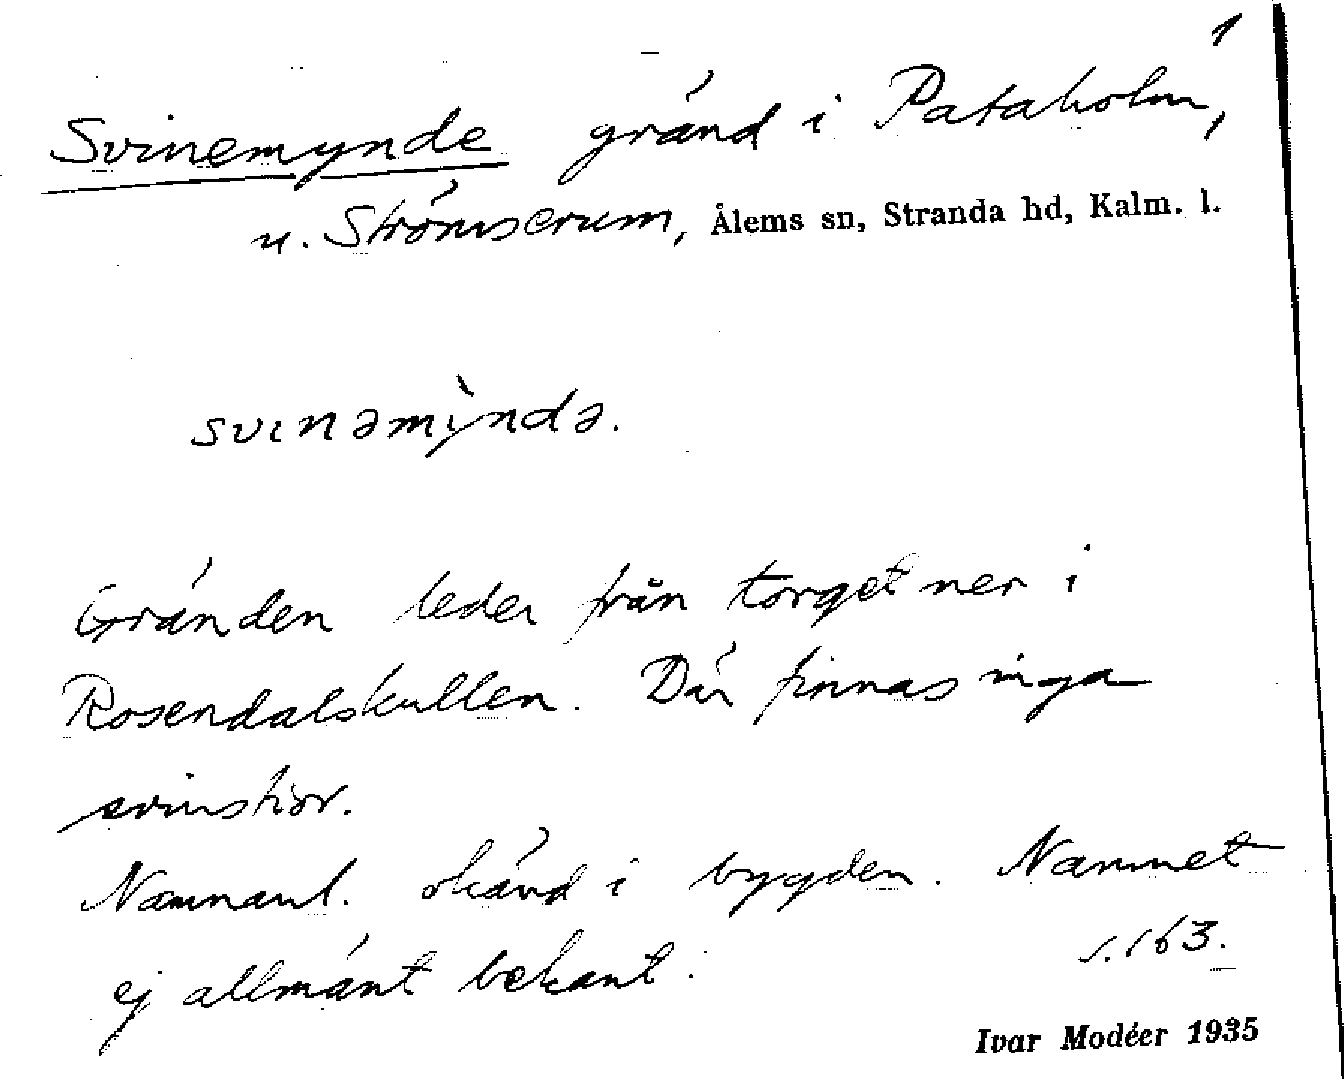 1
Svinemynde gränd i Pataholm,
u. Strömserum, Ålems sn, Stranda hd, Kalm. l.
svinəmỳndə.
Gränden leder från torget ner i
Rosendalskullen. Där finnas inga
svinstior.
Namnanl. okänd i bygden. Namnet
ej allmänt bekant.
s. 163.
Ivar Modéer 1935